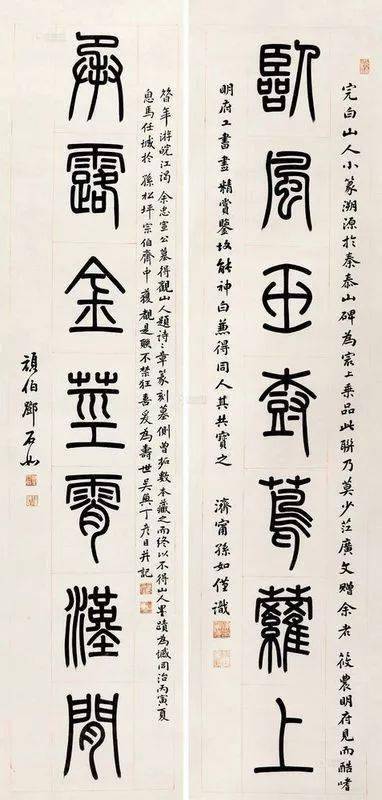 完白山人小篆溯源於秦泰山碑為冣上乘品此聯乃莫少茳廣文贈余者 筱農明府見而酷嗜
臥風玉尌蔦蘿上
明府工書畫精賞鑒故能神白兼得同人其共寶之 濟甯孫如僅識
昝年游皖江謁 余忠宣公墓得觀山人題詩三章篆刻墓側曾拓數本藏之而終以不得山人墨蹟為憾同治丙寅夏
息馬任城於 孫松坪宗伯齋中獲覩是聯不禁狂喜爰為壽世吳興丁彥臣并記
承露金莖霄漢間
頑伯鄧石如